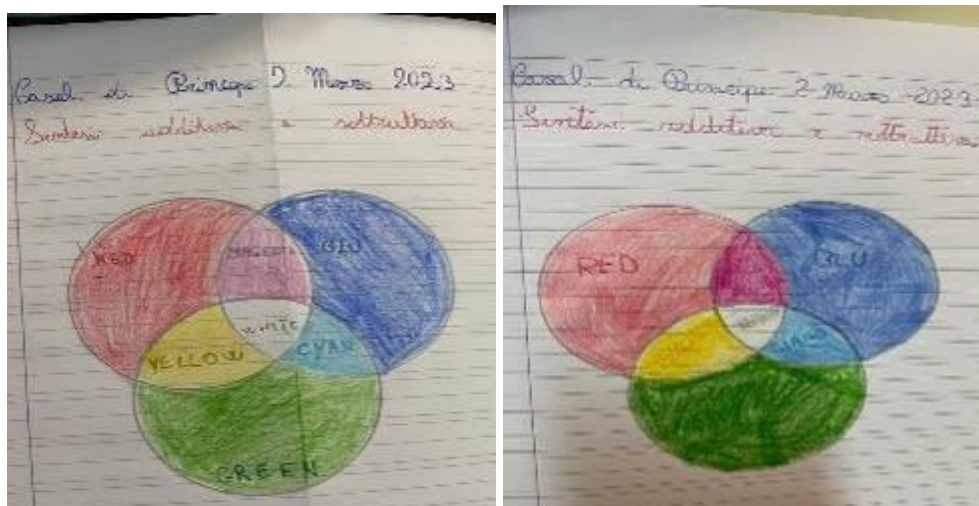 Casal di Principe 2 Marzo 2023
Sintesi additiva e sottrattiva
RED
MAGENTA
BLU
WHITE
YELLOW
CYAN
GREEN
Casal di Principe 2 Marzo 2023
Sintesi additiva e sottrattiva
RED
BLU